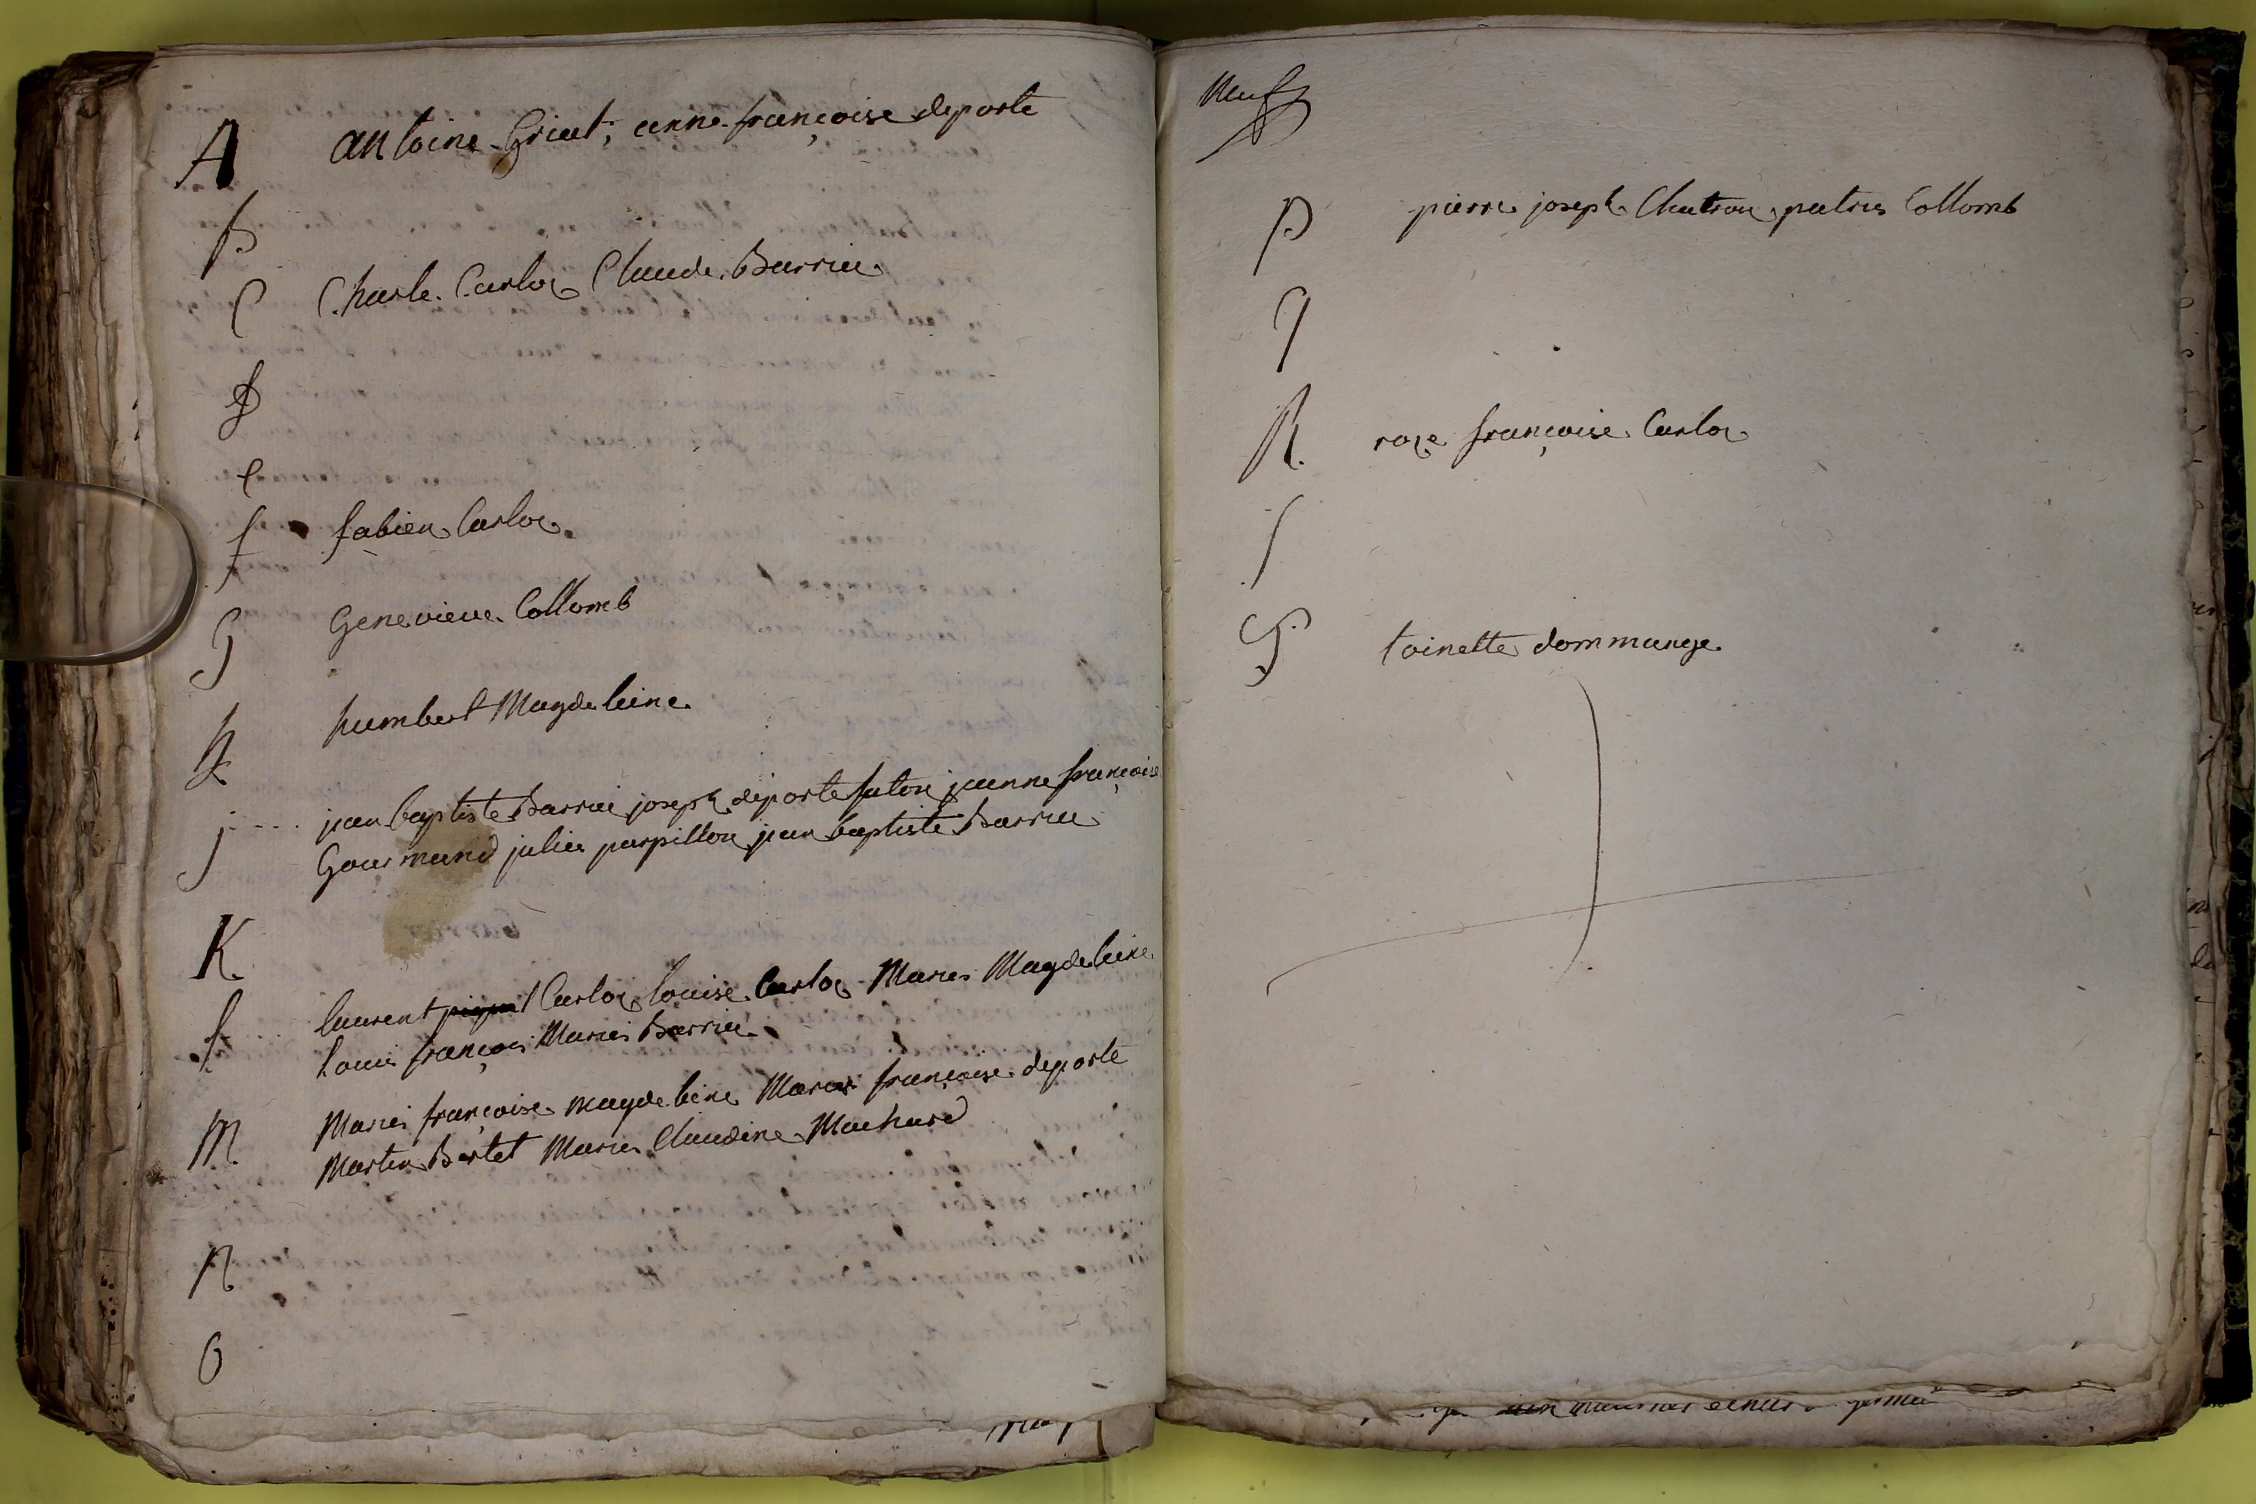 A antoine Griat, anne françoise deporte
B
C Charle Carloz Claude Barrin
D
e
f fabien Carloz
G Genevieve Collomb
h humbert Magdeleine
j jean baptiste Barrin joseph deporte jeanne françoise
Gourmand julien parpillon jean baptiste Barrin
K
L laurent Carloz louise Carloz Marie Magdeleine
Louis françois Marie Barrin
M Marie françoise magdeleine Marie françoise deporte
Martin Bertet Marie Claudine Machard
N
O
Neuf
P pierre joseph Chatron patris Collomb
q
R roze françoise Carloz
S
T toinette dommange